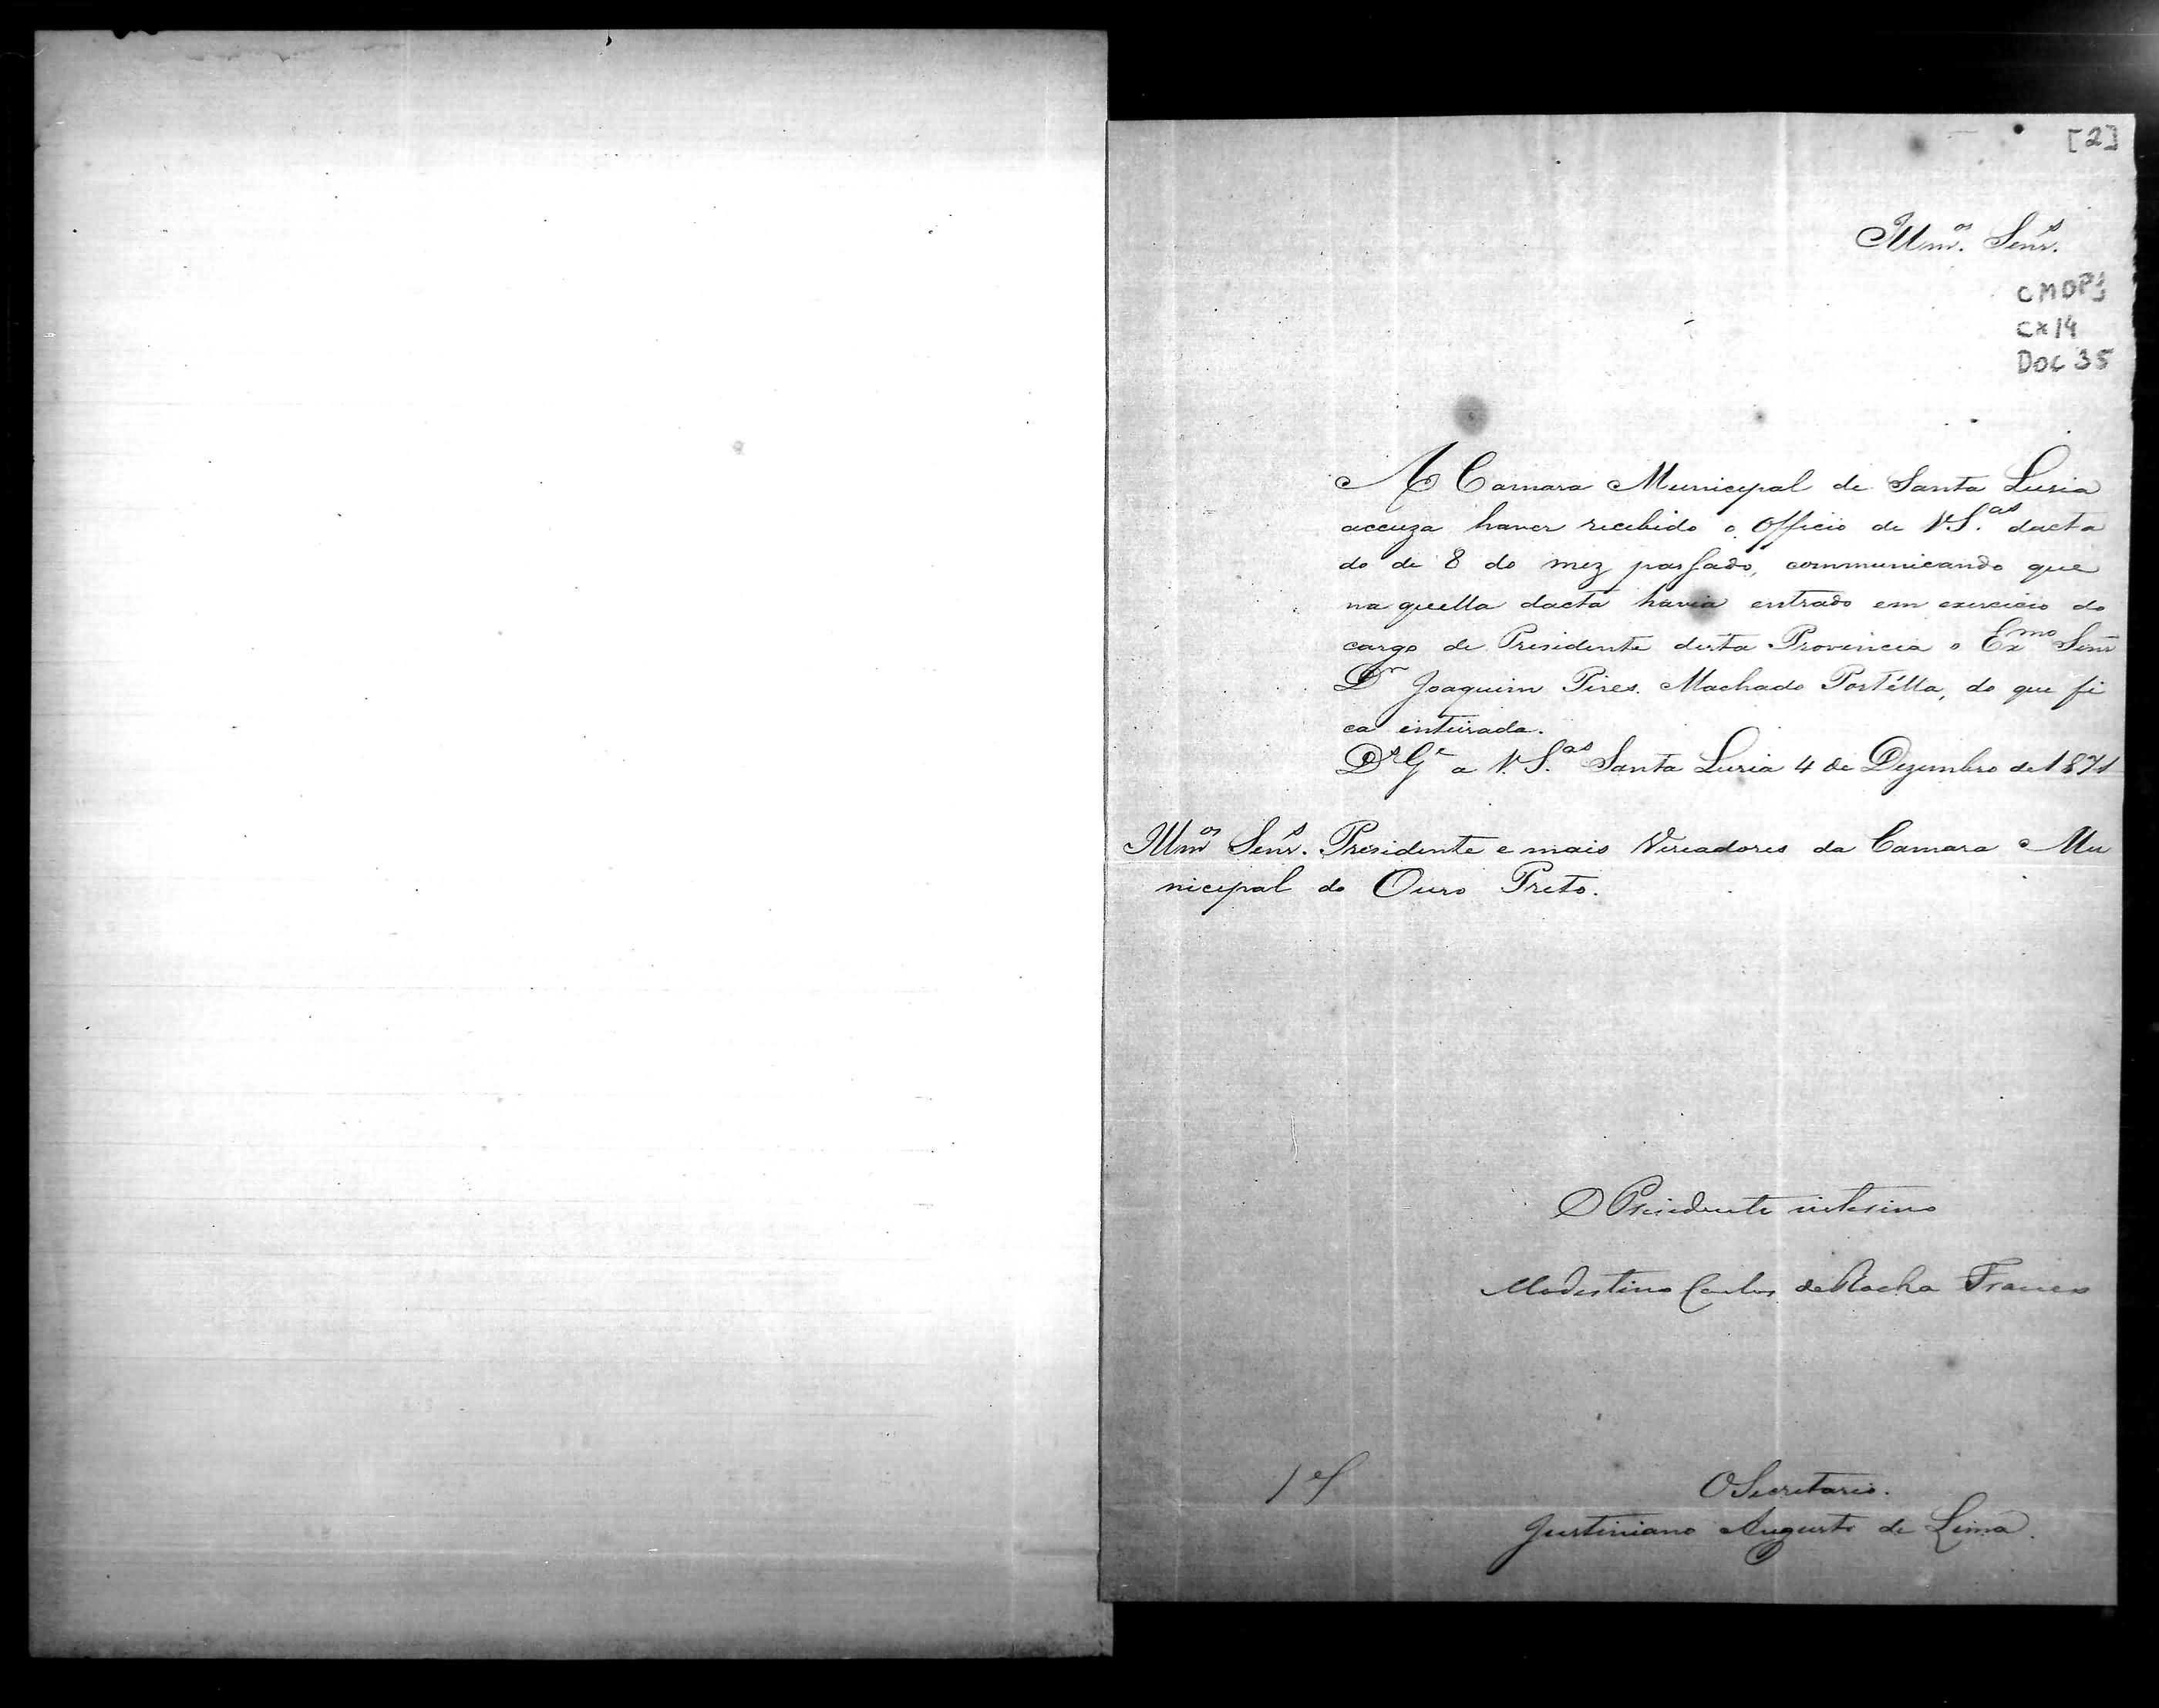 [2]
Illm.os Senr.s
CMOP
CX 14
DOC 35
A Camara Municipal de Santa Lusia
accuza haver recebido o Officio de V.S.as dacta
do de 8 do mez passado, communicando que
na quella dacta havia entrado em exercicio do
cargo de Presidente desta Provincia o Exmo Senr
Dr Joaquim Pires Machado Portélla, do que fi
ca enteirada.
Ds Ge a V.S.as Santa Lusia 4 de Dezembro de 1871
Illmos Senr.s Presidente e mais Vereadores da Camara Mu
nicipal do Ouro Preto.
O Presidente interino
Modestino Carlos da Rocha Franco
O Secretario.
Justiniano Augusto de Lima.